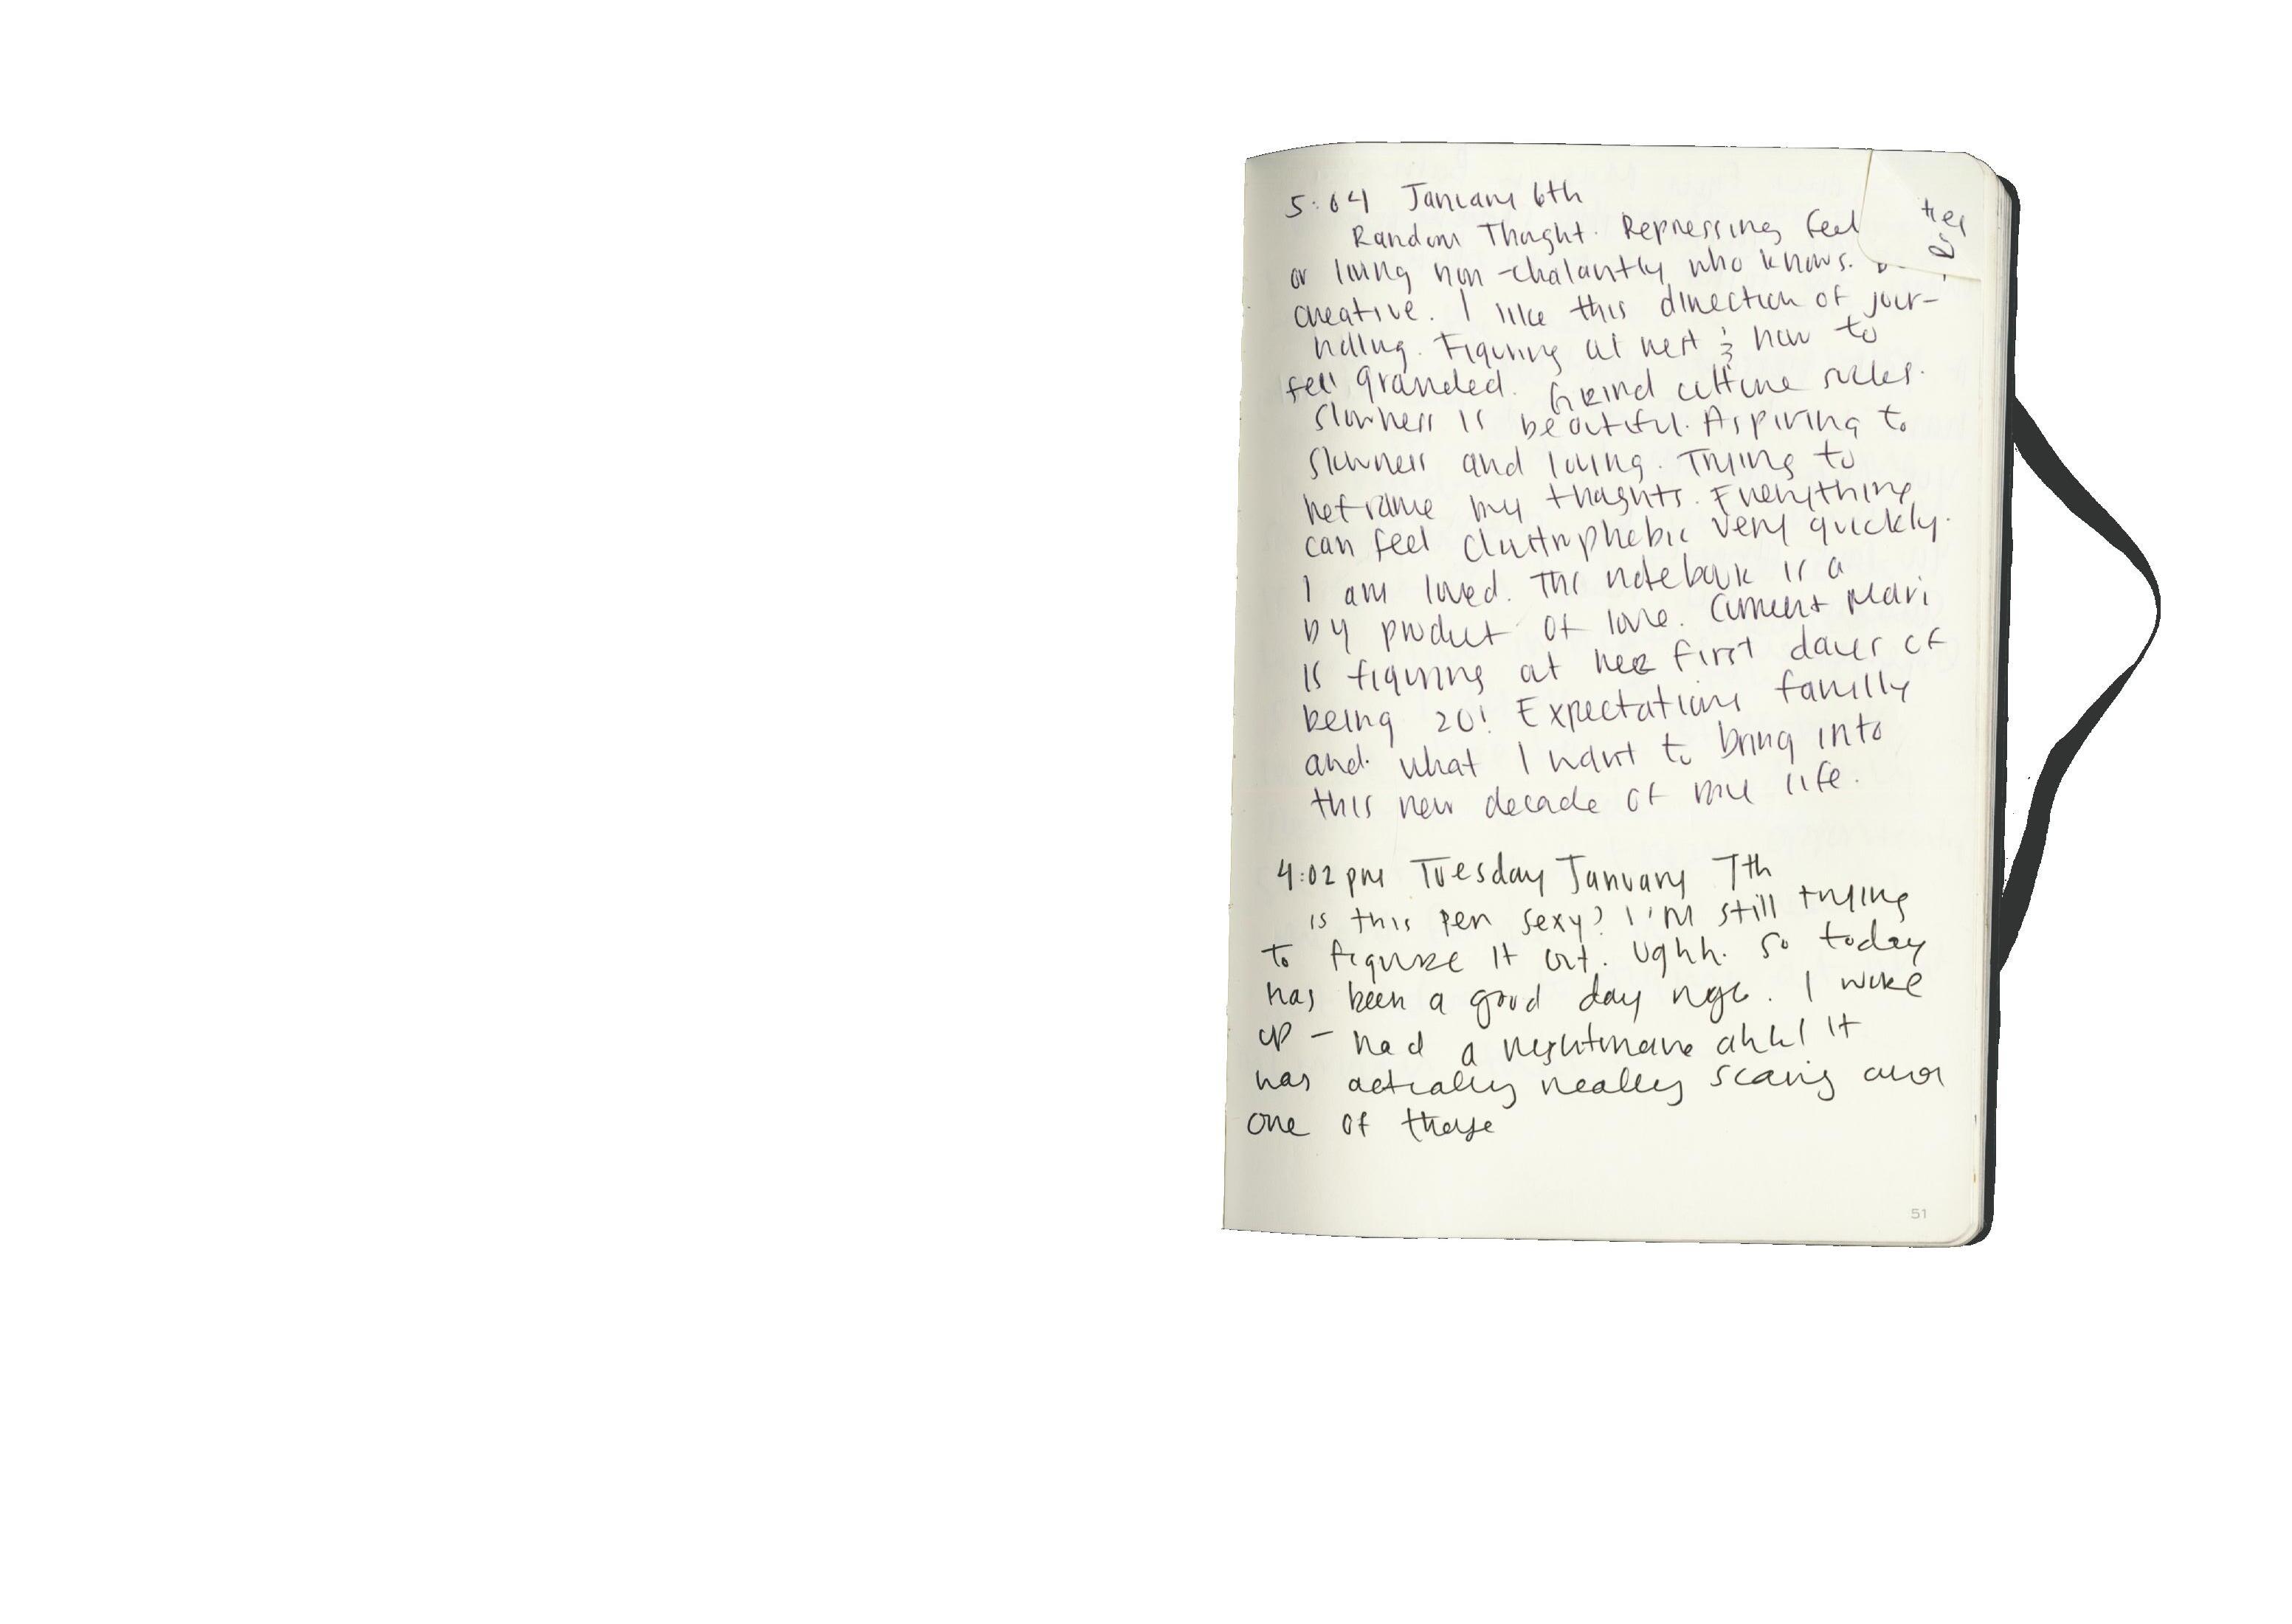 5:04 January 6th
Random Thought. Repressing feel
or living non-chalantly who knows.
creative. I like this direction of jour-
naling. Figuring out rest & how to
feel grounded. Grind culture sucks.
Slowness is beautiful. Aspiring to
slowness and loving. Trying to
reframe my thoughts. Everything
can feel claustrophobic very quickly.
I am loved. This notebook is a
by product of love. Current Mari
is figuring out her first days of
being 20! Expectations family
and what I want to bring into
this new decade of my life.
4:02 pm Tuesday January 7th
is this pen sexy? I'm still trying
to figure it out. Ughh. So today
has been a good day ngl. I woke
up - had a nightmare ahh! It
was actually really scary and
one of those
51